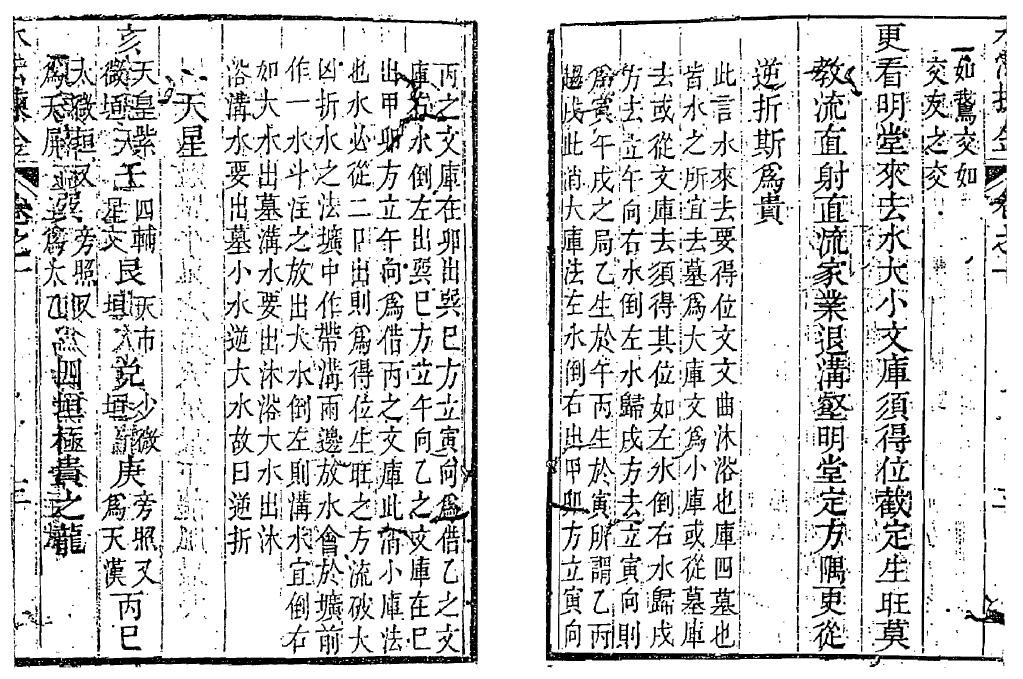 如鵞交如
交友之交
更看明堂來去水大小文庫須得位截定生旺莫
教流直射直流家業退溝壑明堂定方隅更從
逆折斯爲貴
此言水來去要得位文文曲沐浴也庫四墓也
皆水之所宜去墓爲大庫文爲小庫或從墓庫
去或從文庫去須得其位如左水倒右水歸戌
方去立午向右水倒左水歸戌方去立寅向則
爲寅午戌之局乙生於午丙生於寅所謂乙丙
趨戌此消大庫法左水倒右出甲卯方立寅向
丙之文庫在卯出巽巳方立寅向爲借乙之文
庫右水倒左出巽巳方立午向乙之文庫在巳
出甲卯方立午向爲借丙之文庫此消小庫法
也水必從二口出則爲得位生旺之方流破大
凶折水之法壙中作帶溝兩邊放水會於壙前
作一水斗注之放出大水倒左則溝水宜倒右
如大水出墓溝水要出沐浴大水出沐
浴溝水要出墓小水逆大水故曰逆折
天星
亥天皇紫微垣天壬四輔星艮天市垣兌少微庚旁照又爲天漢丙巳
太微垣又爲天屏巽旁照又爲太乙四垣極貴之龍